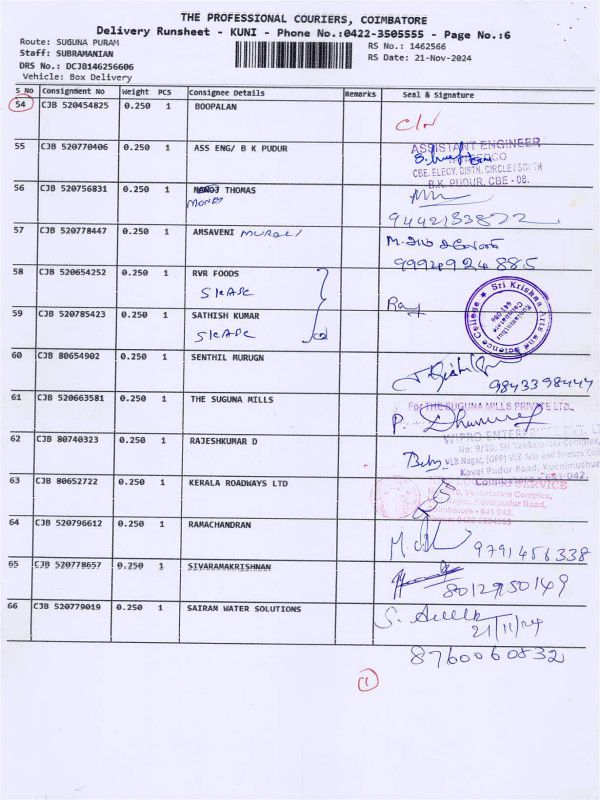 THE PROFESSIONAL COURIERS, COIMBATORE
Delivery Runsheet - KUNI - Phone No.:0422-3505555 - Page No.:6
Route: SUGUNA PURAM
Staff: SUBRAMANIAN
DRS No.: DCJB146256606
Vehicle: Box Delivery
RS No.: 1462566
RS Date: 21-Nov-2024
S No Consignment No Weight PCS Consignee Details Remarks Seal & Signature
54 CJB 520454825 0.250 1 BOOPALAN
55 CJB 520770406 0.250 1 ASS ENG/ B K PUDUR
ASSISTANT ENGINEER
CBE. ELECY. DISTN. CIRCLE / SOUTH
B.K. PUDUR, CBE - 08.
56 CJB 520756831 0.250 1 THOMAS
9442133822
57 CJB 520778447 0.250 1 AMSAVENI MURALI
9994924885
58 CJB 520654252 0.250 1 RVR FOODS
SKASC
Sri Krishna Arts and Science College
59 CJB 520785423 0.250 1 SATHISH KUMAR
SKASC
60 CJB 80654902 0.250 1 SENTHIL MURUGN
9843398447
61 CJB 520663581 0.250 1 THE SUGUNA MILLS
For THE SUGUNA MILLS PRIVATE LTD.,
P.
62 CJB 80740323 0.250 1 RAJESHKUMAR D
WIPRO ENTERPRISES PVT. LT
No: 9/10, Sri Venkataram Complex,
VLB Nagar, (OPP) VLB Arts and Science Coll
Kovai Pudur Road, Kuniamuthur
Coimbatore - 641 042.
63 CJB 80652722 0.250 1 KERALA ROADWAYS LTD
SERVICE
Venkataram Complex,
Nagar, Kovaipudur Road,
Coimbatore - 641 042.
64 CJB 520796612 0.250 1 RAMACHANDRAN
9791456338
65 CJB 520778657 0.250 1 SIVARAMAKRISHNAN
8012950149
66 CJB 520779019 0.250 1 SAIRAM WATER SOLUTIONS
21/11/24
8760060832
1